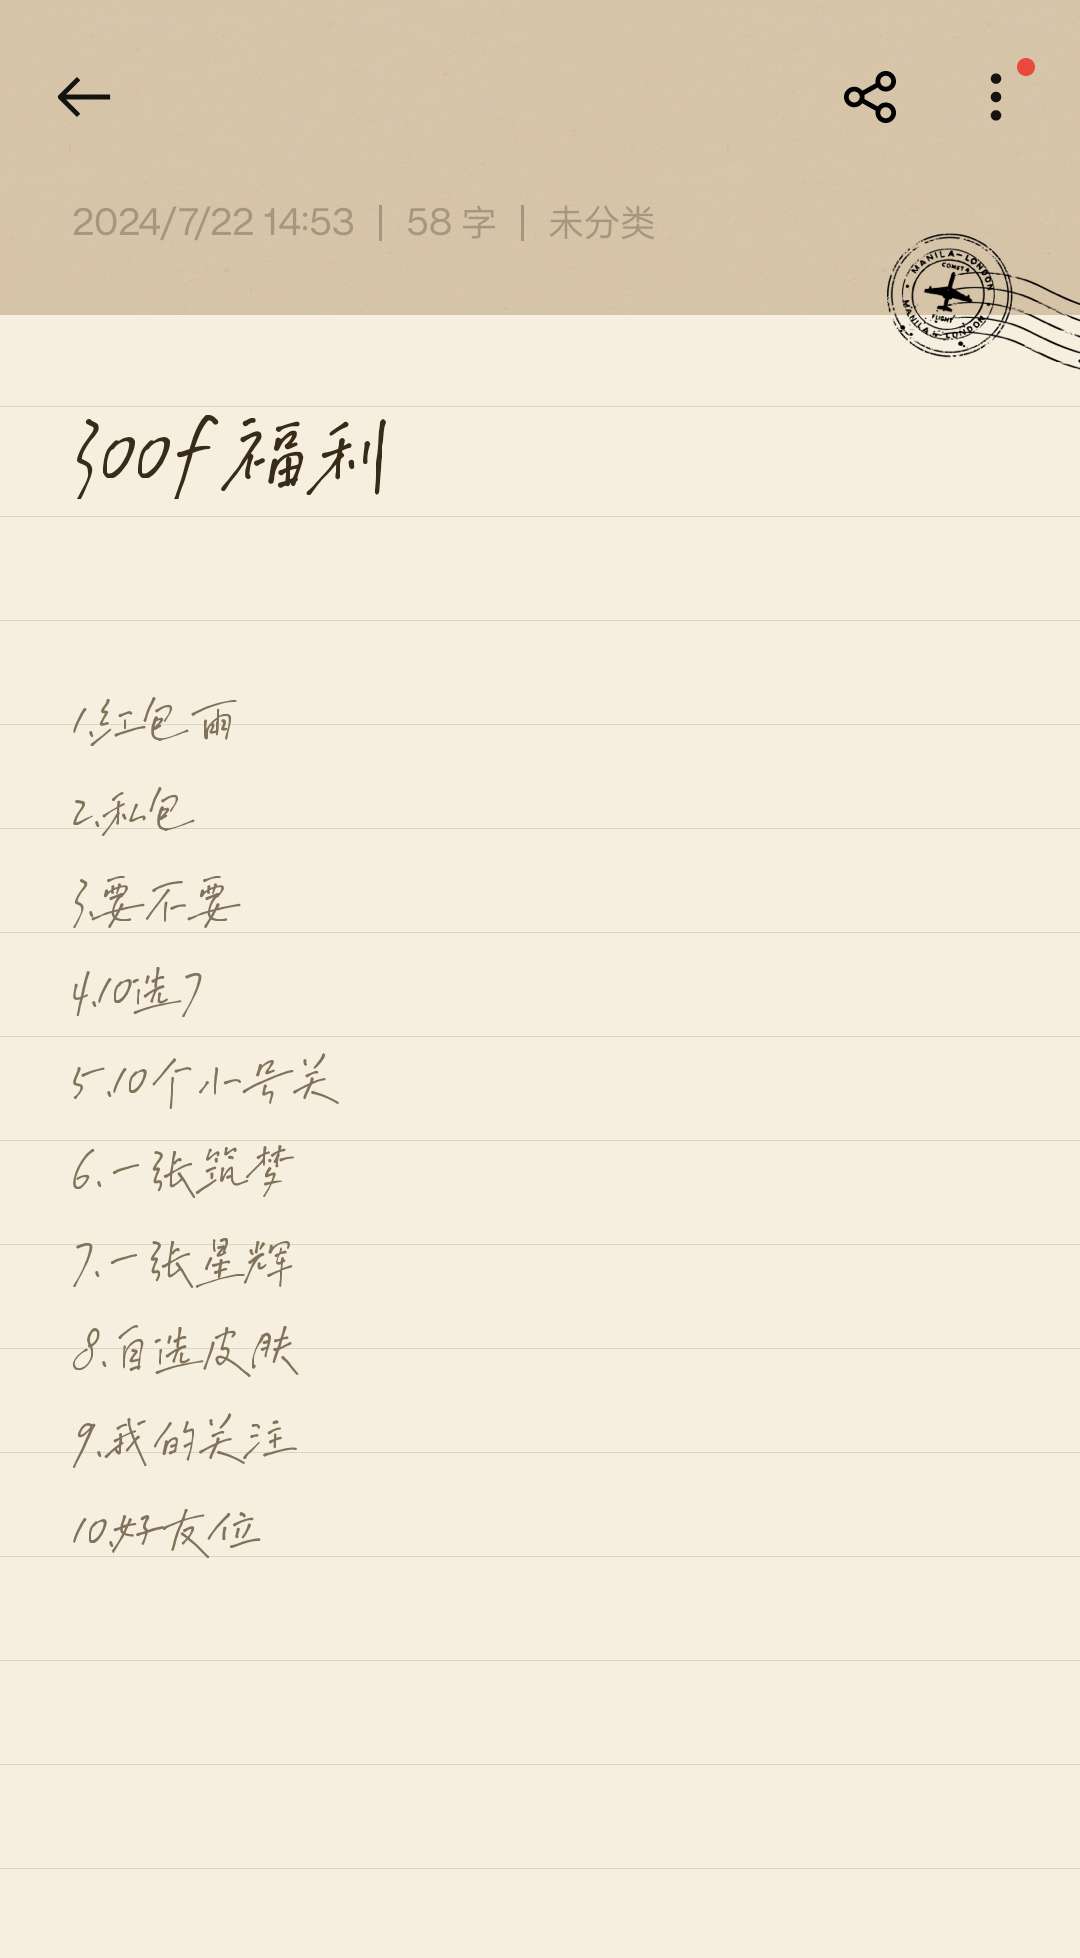 2024/7/22 14:53 | 58 字 | 未分类
MANILA-LONDON
COMET 4
FLIGHT
MANILA & LONDON
300f福利
1.红包雨
2.私包
3.要不要
4.10选7
5.10个小号关
6.一张筑梦
7.一张星辉
8.自选皮肤
9.我的关注
10.好友位